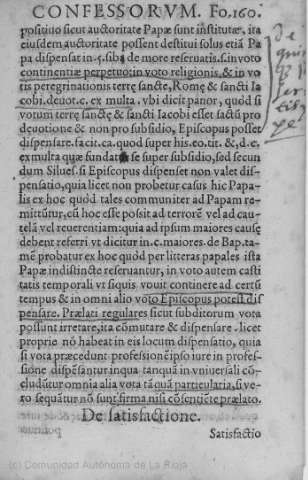 CONFESSORVM. Fo.160.
positiuo sicut auctoritate Papæ sunt institutæ, ita
eiusdem auctoritate possent destitui solus etiā Pa
pa dispensat in .5. siba de more reseruatis. s. in voto
continentiæ perpetuo: in voto religionis, & in vo
tis peregrinationis terrę sanctę, Romę & sancti Ia
cobi. deuot. c. ex multa. vbi dicit panor, quòd si
votum terrę sanctę & sancti Iacobi esset factū pro
deuotione & non pro subsidio, Episcopus posset
dispensare. facit. ca. quod super his. eo. tit. &, d. e.
ex multa quæ fundat se super subsidio, sed secun
dum Siluest. si Episcopus dispenset non valet dis-
pensatio, quia licet non probetur casus hic Papa-
lis ex hoc quòd tales communiter ad Papam re-
mittūtur, cū hoc esse possit ad terrorē vel ad cau-
telā vel reuerentiam: quia ad ipsum maiores causę
debent referri vt dicitur in. c. maiores. de Bap. ta-
mē probatur ex hoc quòd per litteras papales ista
Papæ indistincte reseruantur, in voto autem casti
tatis temporali vt siquis vouit continere ad certū
tempus & in omni alio voto Episcopus potest dis
pensare. Prælati regulares sicut subditorum vota
possunt irretare, ita cōmutare & dispensare. licet
proprie nō habeat in eis locum dispensatio, quia
si vota præcedunt professionē ipso iure in profes-
sione dispēsantur inqua tanquā in vniuersali cō-
cludūtur omnia alia vota tāquā particularia, si ve-
ro sequātur nō sunt firma nisi cōsentiēte prælato.
De satisfactione.
Satisfactio
(c) Comunidad Autónoma de La Rioja